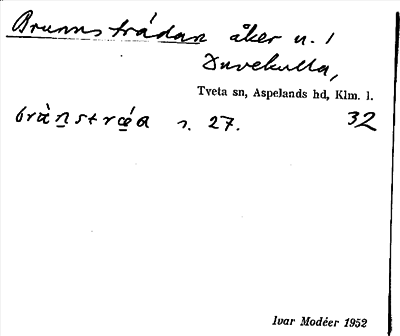 Brunnsträdan åker n. 1
Duvekulla,
Tveta sn, Aspelands hd, Klm. l.
32
s. 27.
Ivar Modéer 1952